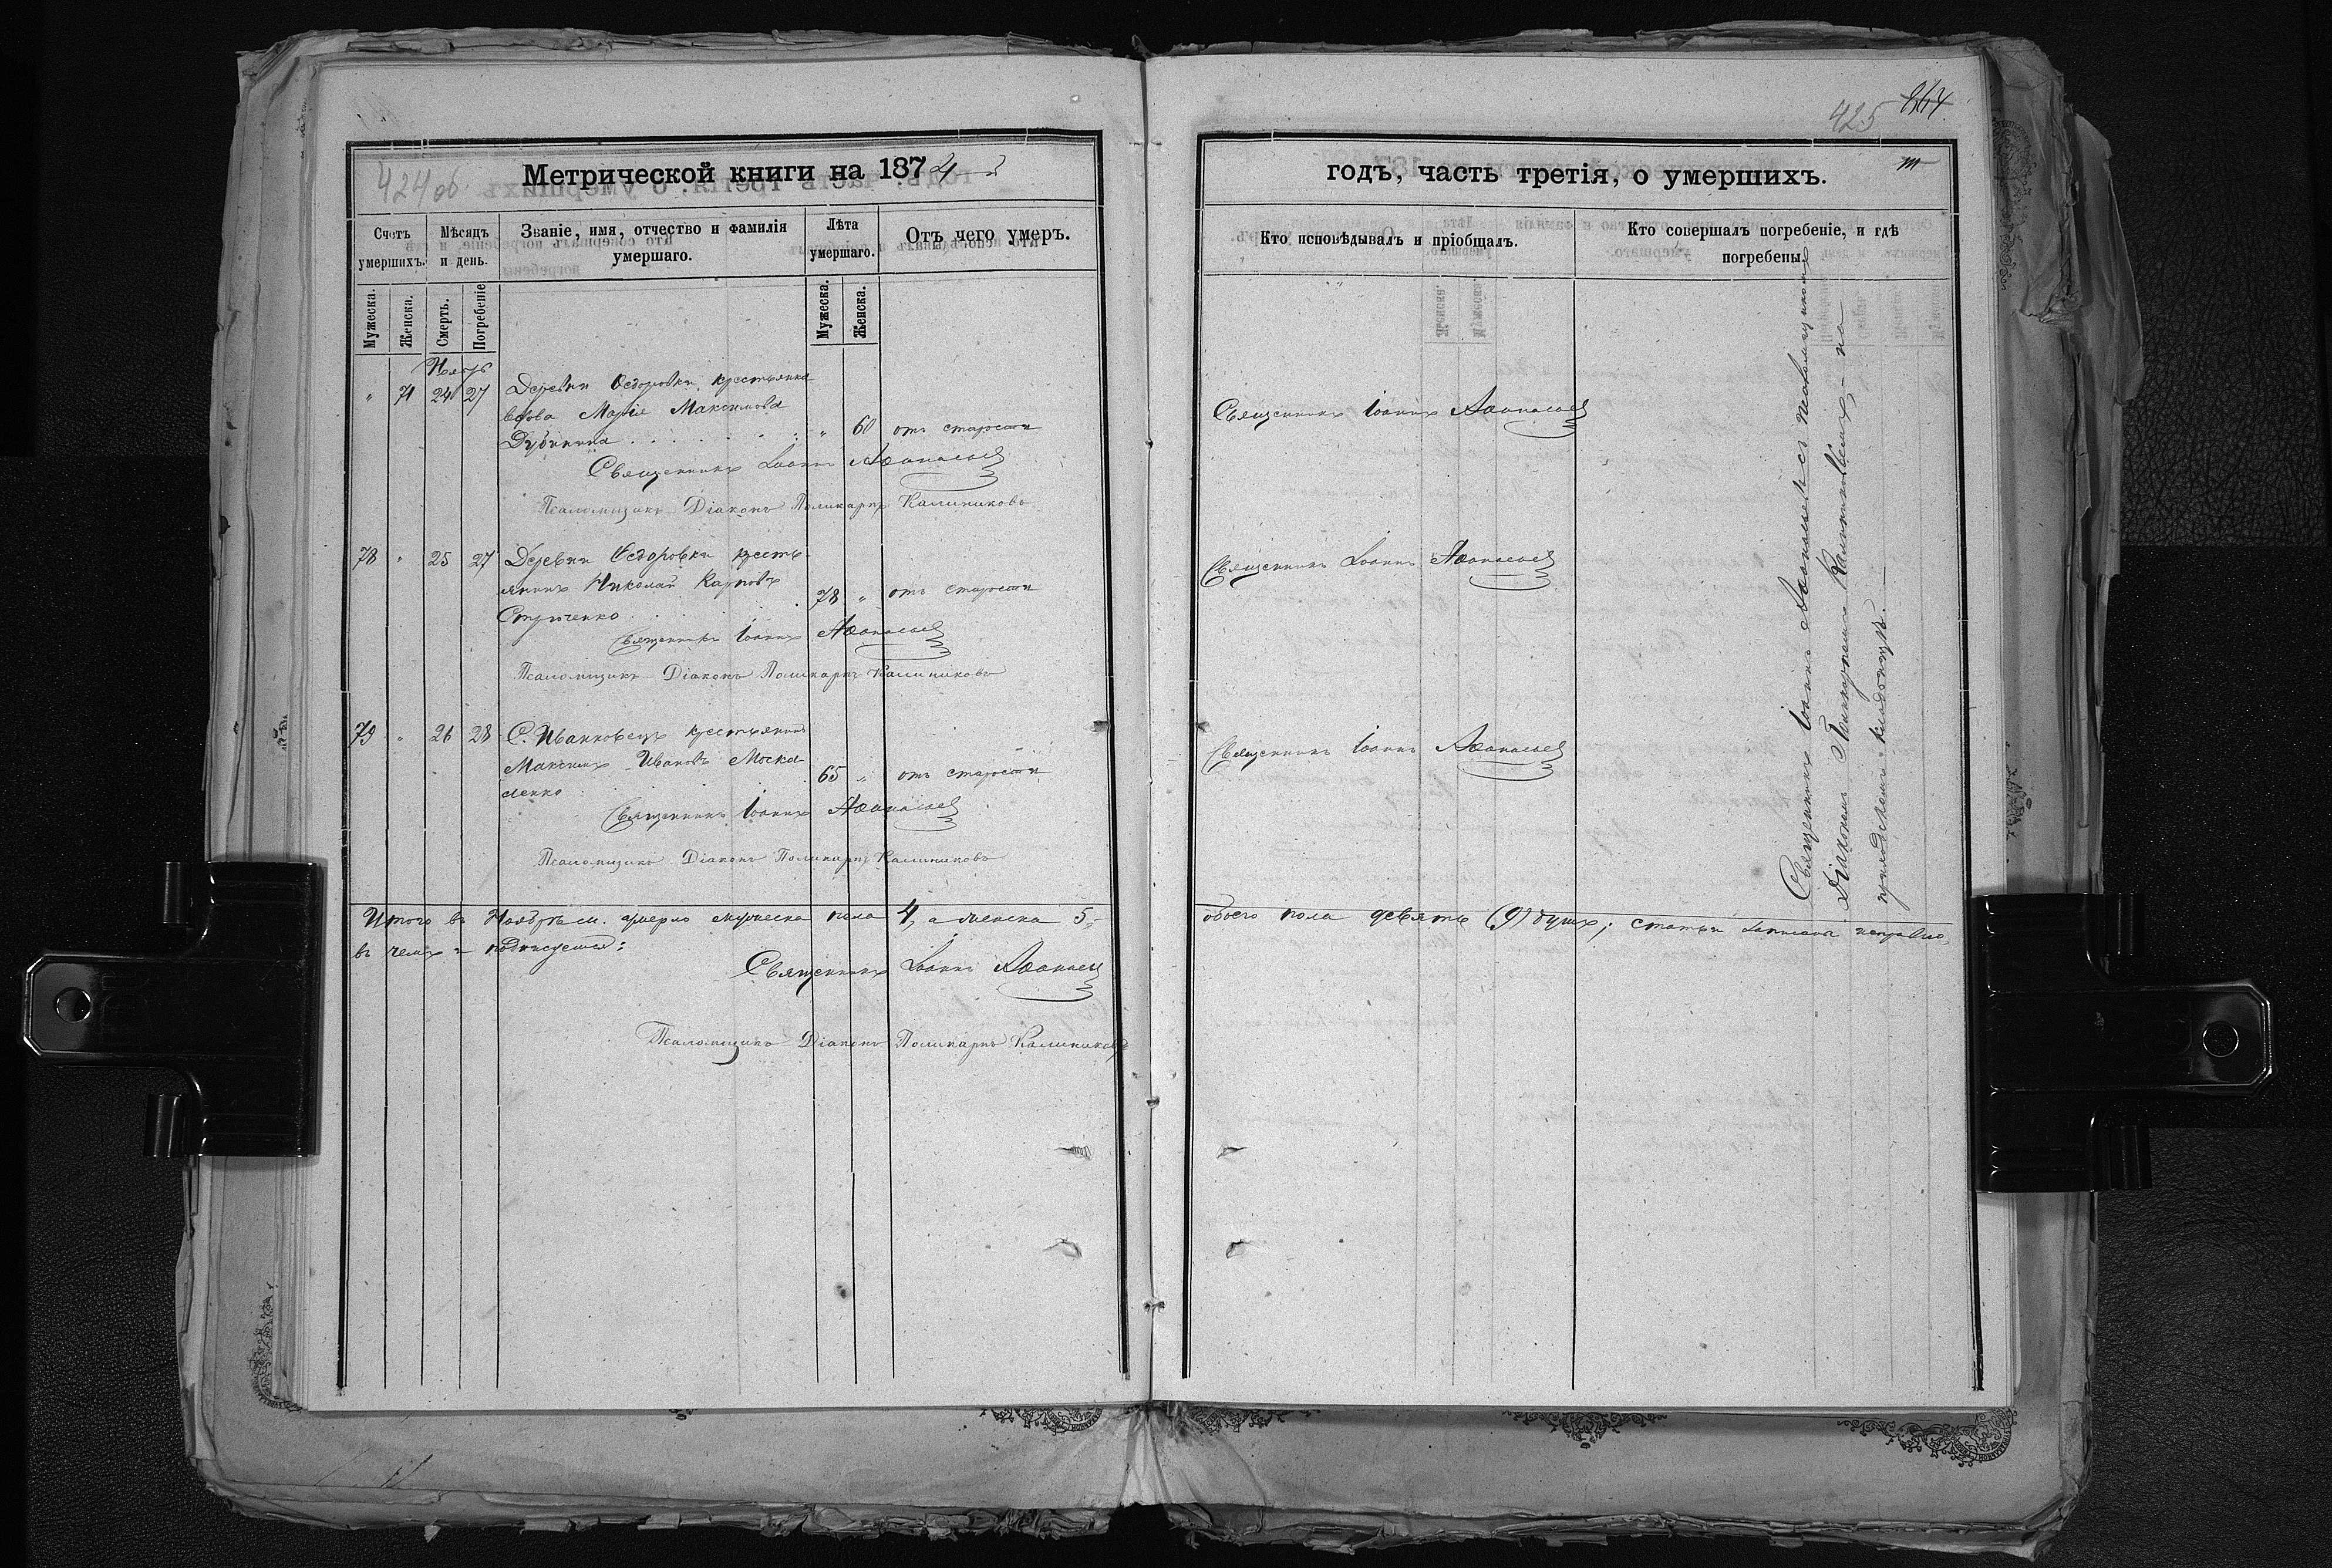 424 об.
Метрической книги на 1874-й
Счетъ умершихъ.
Мѣсяцъ и день.
Званіе, имя, отчество и фамилія умершаго.
Лѣта умершаго.
Отъ чего умеръ.
Мужеска.
Женска.
Смерть.
Погребеніе
Мужеска.
Женска.
Ноябрь
" 71 24 27 Деревни Ѳедоровки, крестьянка
вдова Марія Максимова
Дубинина " 60 отъ старости
Священникъ Іоаннъ Аѳанасьев
Псаломщикъ Діаконъ Поликарпъ Калиниковъ
78 " 25 27 Деревни Ѳедоровки кресть
янинъ Николай Карповъ
78 " отъ старости
Священникъ Іоаннъ Аѳанасьев
Псаломщикъ Діаконъ Поликарпъ Калиниковъ
79 " 26 28 С. Иванковецъ крестьянинъ
Максимъ Ивановъ Моска
ленко 65 " отъ старости
Священникъ Іоаннъ Аѳанасьев
Псаломщикъ Діаконъ Поликарпъ Калиниковъ
Итого въ Ноябрѣ м. умерло мужеска пола 4, а женска 5,
въ чемъ и подписуемся:
Священникъ Іоаннъ Аѳанасьев
Псаломщикъ Діаконъ Поликарпъ Калиниковъ
425 264
годъ, часть третія, о умершихъ.
Кто исповѣдывалъ и пріобщалъ.
Кто совершалъ погребеніе, и гдѣ погребены.
Священникъ Іоаннъ Аѳанасьев
Священникъ Іоаннъ Аѳанасьев
Священникъ Іоаннъ Аѳанасьев
Священникъ Іоаннъ Аѳанасьевъ съ псаломщикомъ
Діакономъ Поликарпомъ Калиниковымъ, на
приходскомъ кладбищѣ.
обоего пола девять (9) душъ; статьи записаны исправно,